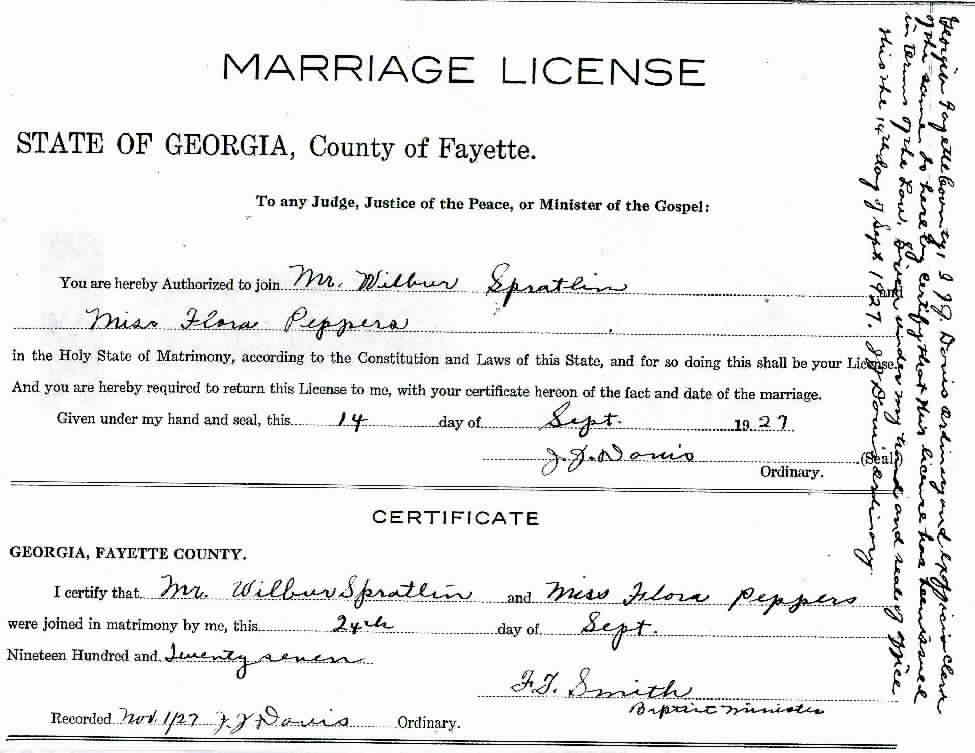 MARRIAGE LICENSE
STATE OF GEORGIA, County of Fayette.
To any Judge, Justice of the Peace, or Minister of the Gospel:
You are hereby Authorized to join Mr. Wilbur Spratlin and
Miss Flora Peppers
in the Holy State of Matrimony, according to the Constitution and Laws of this State, and for so doing this shall be your License.
And you are hereby required to return this License to me, with your certificate hereon of the fact and date of the marriage.
Given under my hand and seal, this 14 day of Sept. 1927
J. J. Davis (Seal)
Ordinary.
CERTIFICATE
GEORGIA, FAYETTE COUNTY.
I certify that Mr. Wilbur Spratlin and Miss Flora Peppers
were joined in matrimony by me, this 24th day of Sept.
Nineteen Hundred and Twenty seven
F. T. Smith
Baptist Minister
Recorded Nov. 1/27 J J Davis Ordinary.
Georgia Fayette County, I J J. Davis ordinary and exofficio Clerk
of the same do hereby certify that this license has been issued
in terms of the Law. Given under my hand and seal of office
this the 14th day of Sept 1927. J J Davis ordinary.